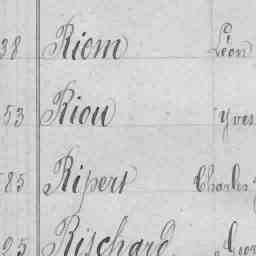 38 Riom Léon
53 Riou Yves
85 Ripert Charles
25 Rischard